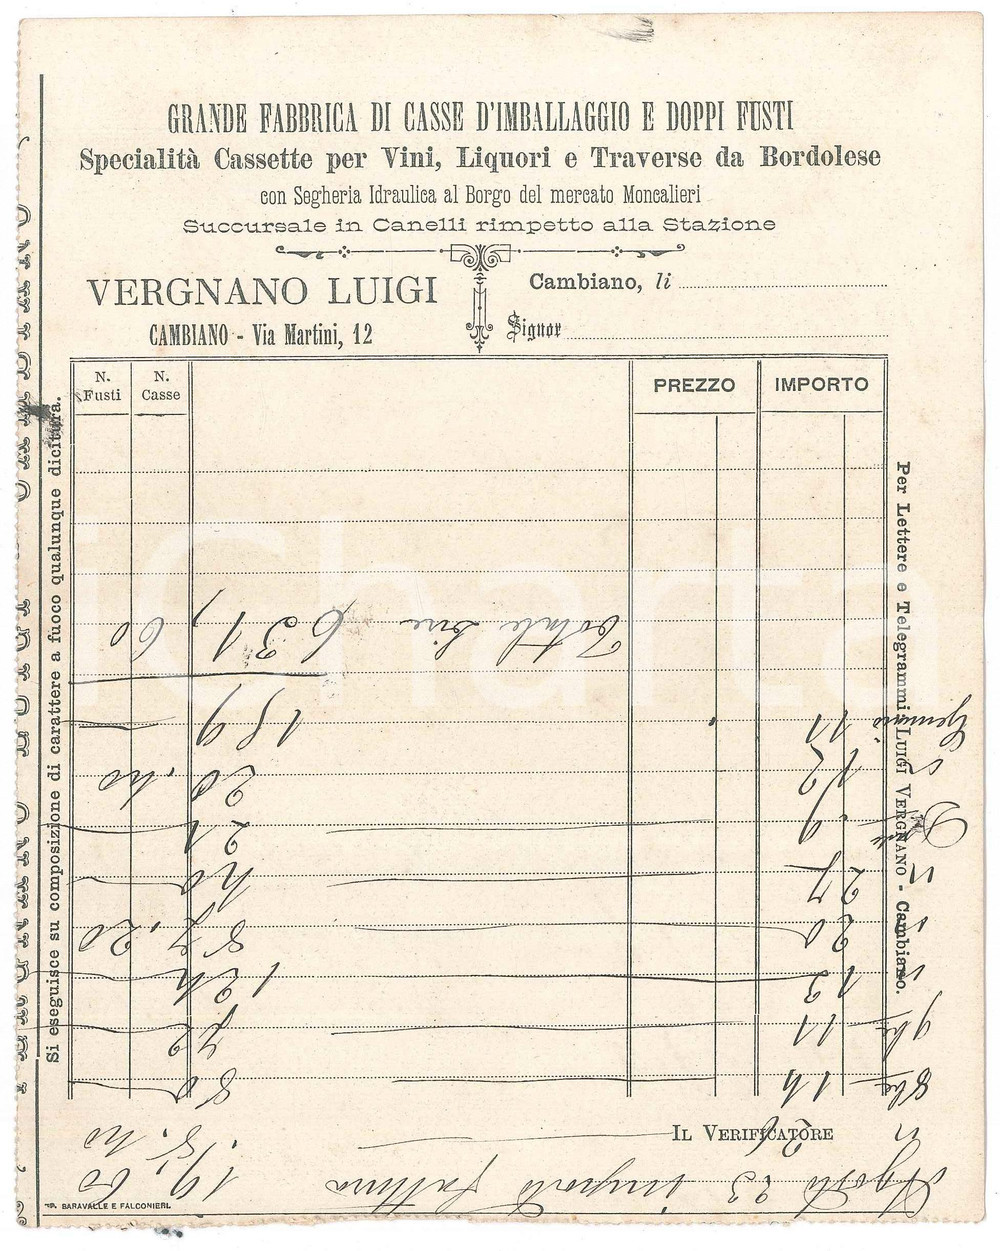 GRANDE FABBRICA DI CASSE D'IMBALLAGGIO E DOPPI FUSTI
Specialità Cassette per Vini, Liquori e Traverse da Bordolese
con Segheria Idraulica al Borgo del mercato Moncalieri
Succursale in Canelli rimpetto alla Stazione
VERGNANO LUIGI
CAMBIANO - Via Martini, 12
Cambiano, li
Signor
N. Fusti
N. Casse
PREZZO
IMPORTO
Si eseguisce su composizione di carattere a fuoco qualunque dicitura.
Per Lettere e Telegrammi LUIGI VERGNANO - Cambiano.
IL VERIFICATORE
TIP. BARAVALLE E FALCONIERI.
Agosto 23 importo fattura 19,60
26
8bre 14 80
9bre 11 72
" 13 124
" 20 87,20
" 27 40
Dbre 9 21
" 12 20,40
Gennaio 11 159
Totale Lire 631,60
iCharta